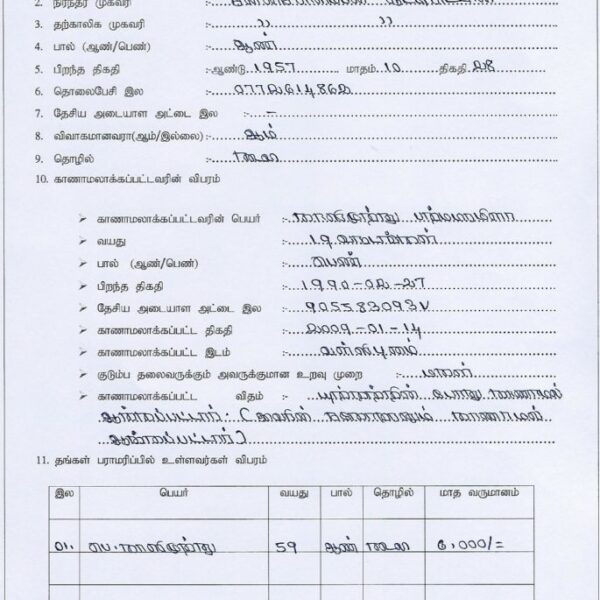 2. நிரந்தர முகவரி :-
3. தற்காலிக முகவரி :- ,, ,,
4. பால் (ஆண்/பெண்) :- ஆண்
5. பிறந்த திகதி :-ஆண்டு 1957 மாதம் 10 திகதி 28
6. தொலைபேசி இல :- 0772614862
7. தேசிய அடையாள அட்டை இல :- -
8. விவாகமானவரா(ஆம்/இல்லை) :- ஆம்
9. தொழில் :- கூலி
10. காணாமலாக்கப்பட்டவரின் விபரம்
➢ காணாமலாக்கப்பட்டவரின் பெயர் :-
➢ வயது :- 19
➢ பால் (ஆண்/பெண்) :- பெண்
➢ பிறந்த திகதி :- 1990-02-27
➢ தேசிய அடையாள அட்டை இல :- 905583093V
➢ காணாமலாக்கப்பட்ட திகதி :- 2009-01-14
➢ காணாமலாக்கப்பட்ட இடம் :- வள்ளிபுனம்
➢ குடும்ப தலைவருக்கும் அவருக்குமான உறவு முறை :- மகள்
➢ காணாமலாக்கப்பட்ட விதம் :- யுத்தத்தின் போது காணாமல்
ஆக்கப்பட்டார். ( காணாமல்
ஆக்கப்பட்டார் )
11. தங்கள் பராமரிப்பில் உள்ளவர்கள் விபரம்
இல பெயர் வயது பால் தொழில் மாத வருமானம்
01. 59 ஆண் கூலி 6,000/=